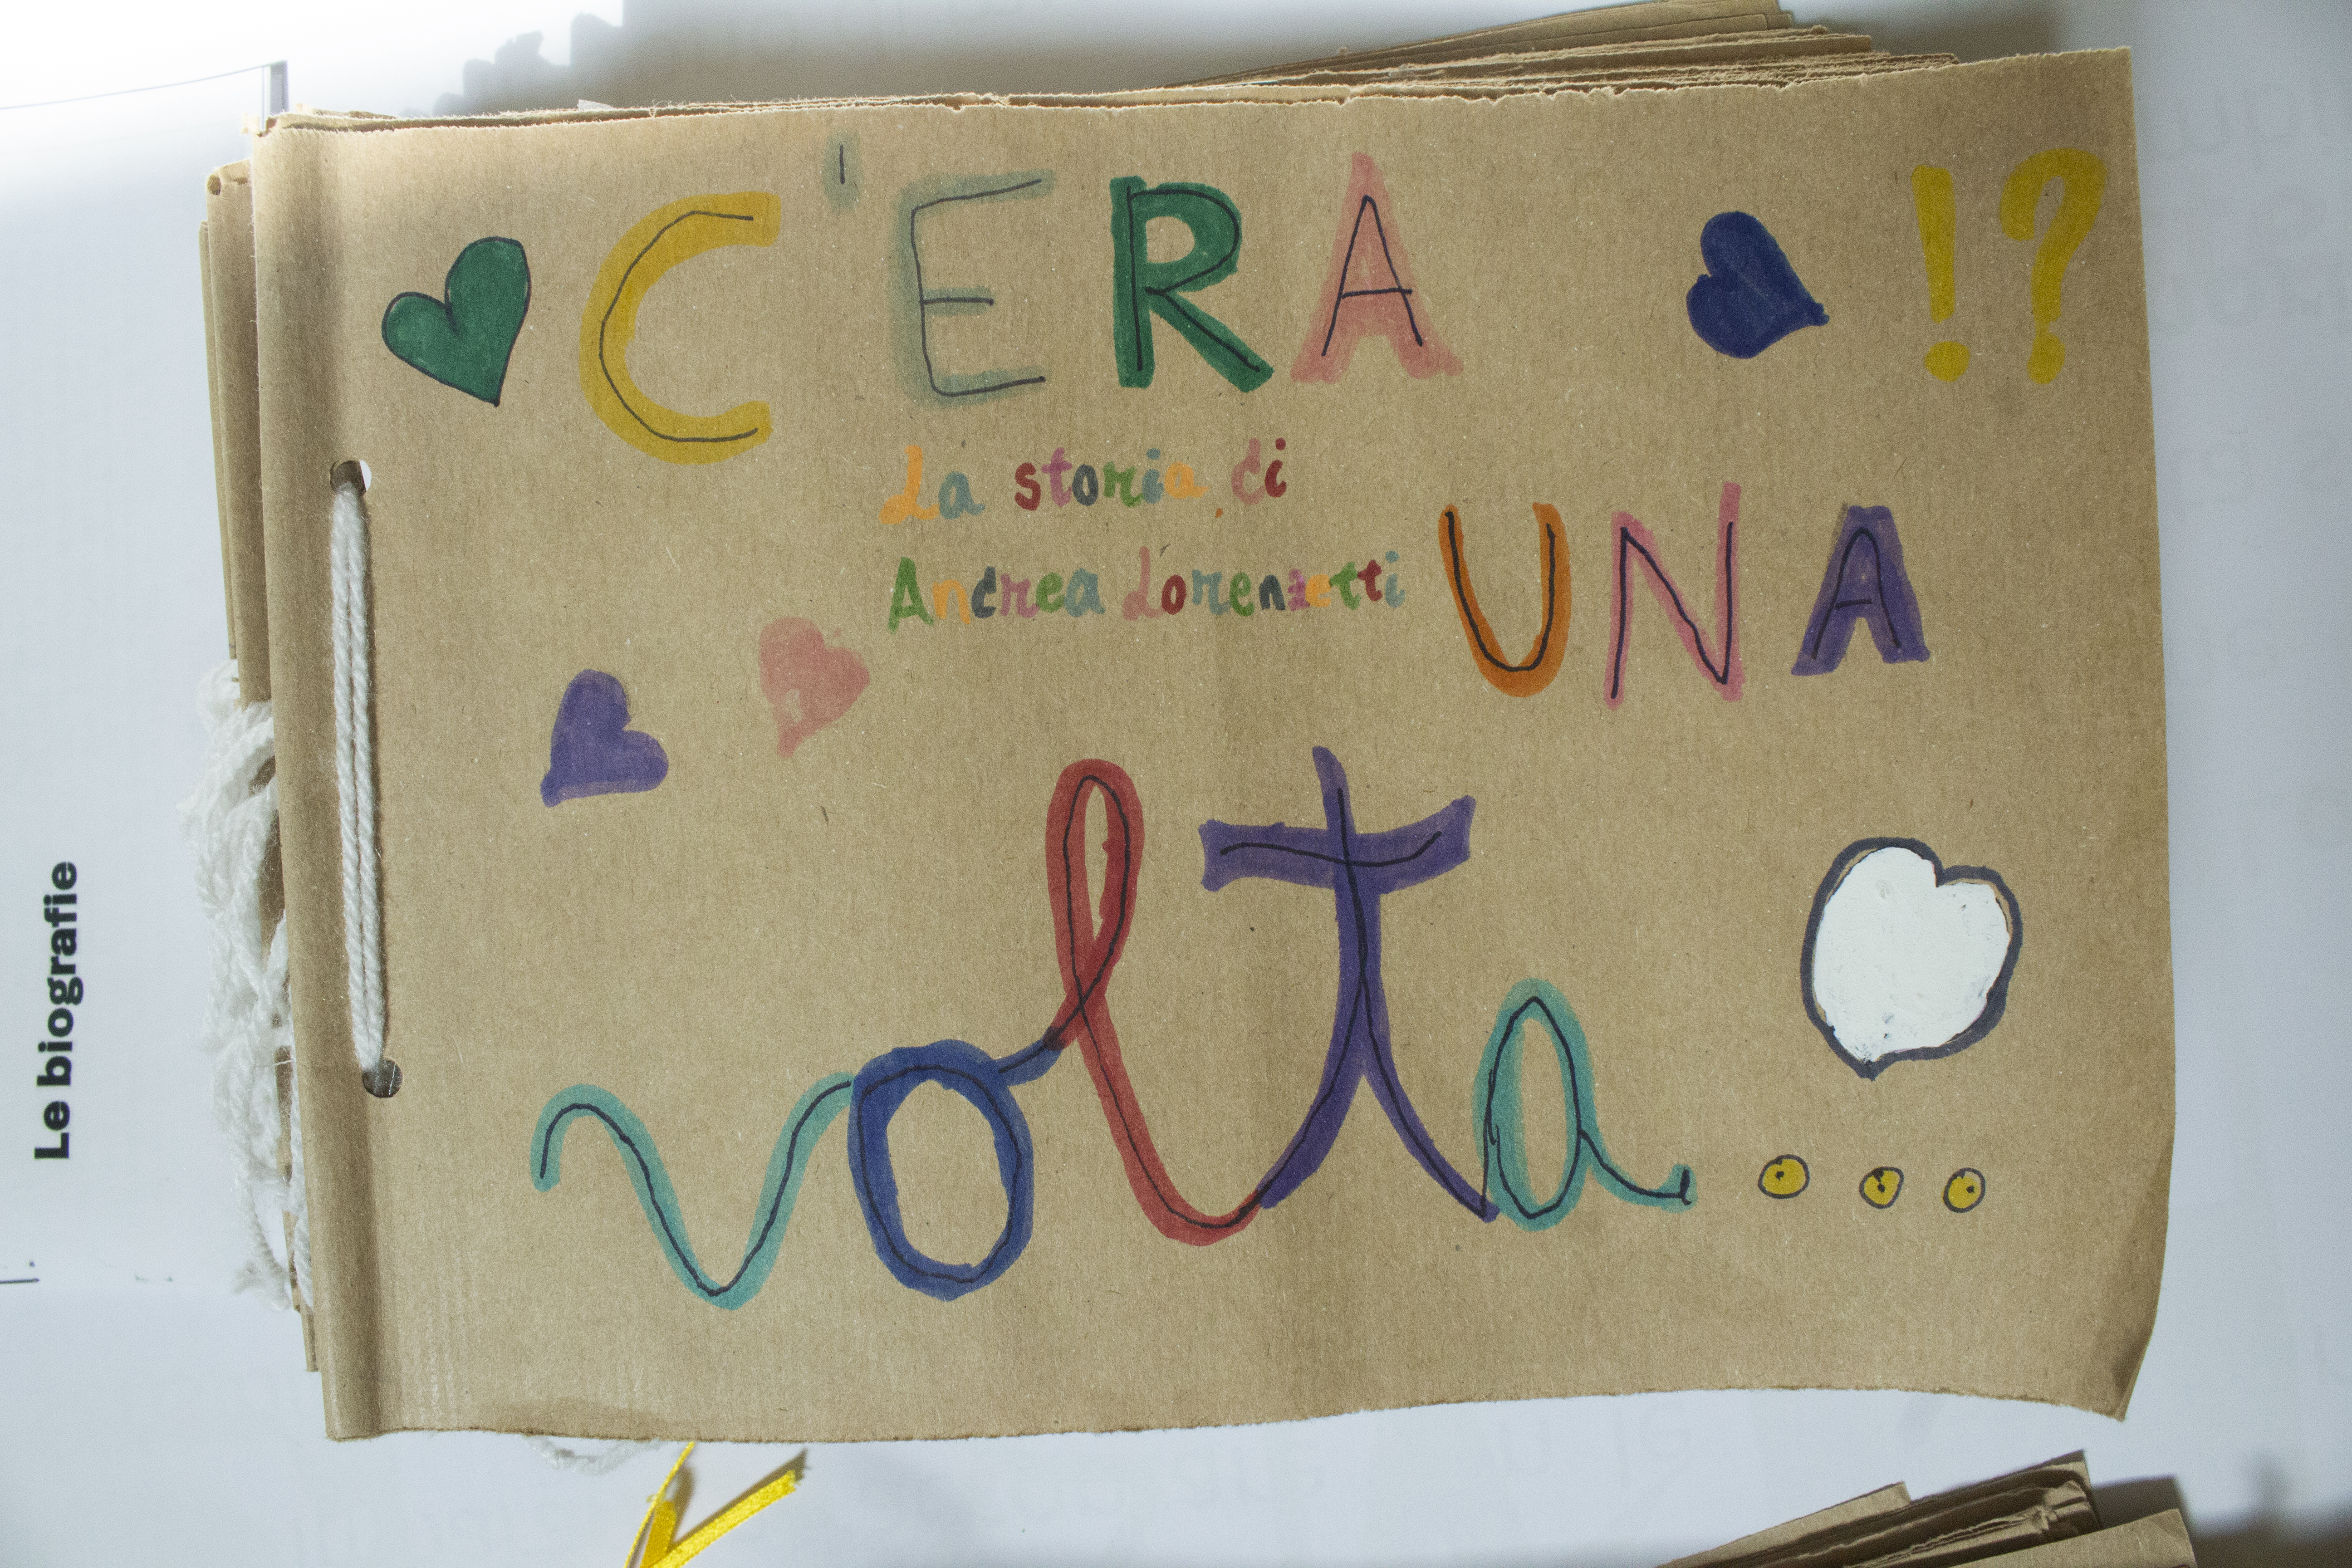 C'ERA !?
La storia di
Andrea Lorenzetti
UNA
volta...
Le biografie